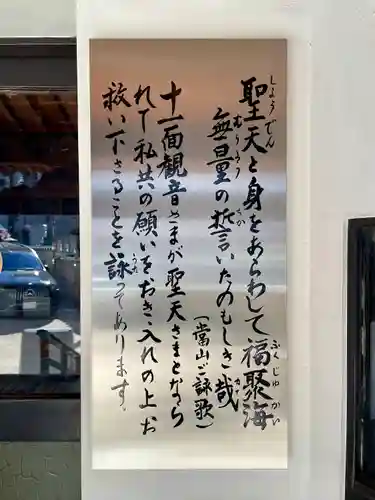 聖天と身をあらわして福聚海
しょうでん
ふくじゅかい
無量の誓言いたのもしき哉
むりょう
ちかい
かな
(当山ご詠歌)
十一面観音さまが聖天さまとなら
れて私共の願いをおき入れの上お
救い下さることを詠ってあります。
うた